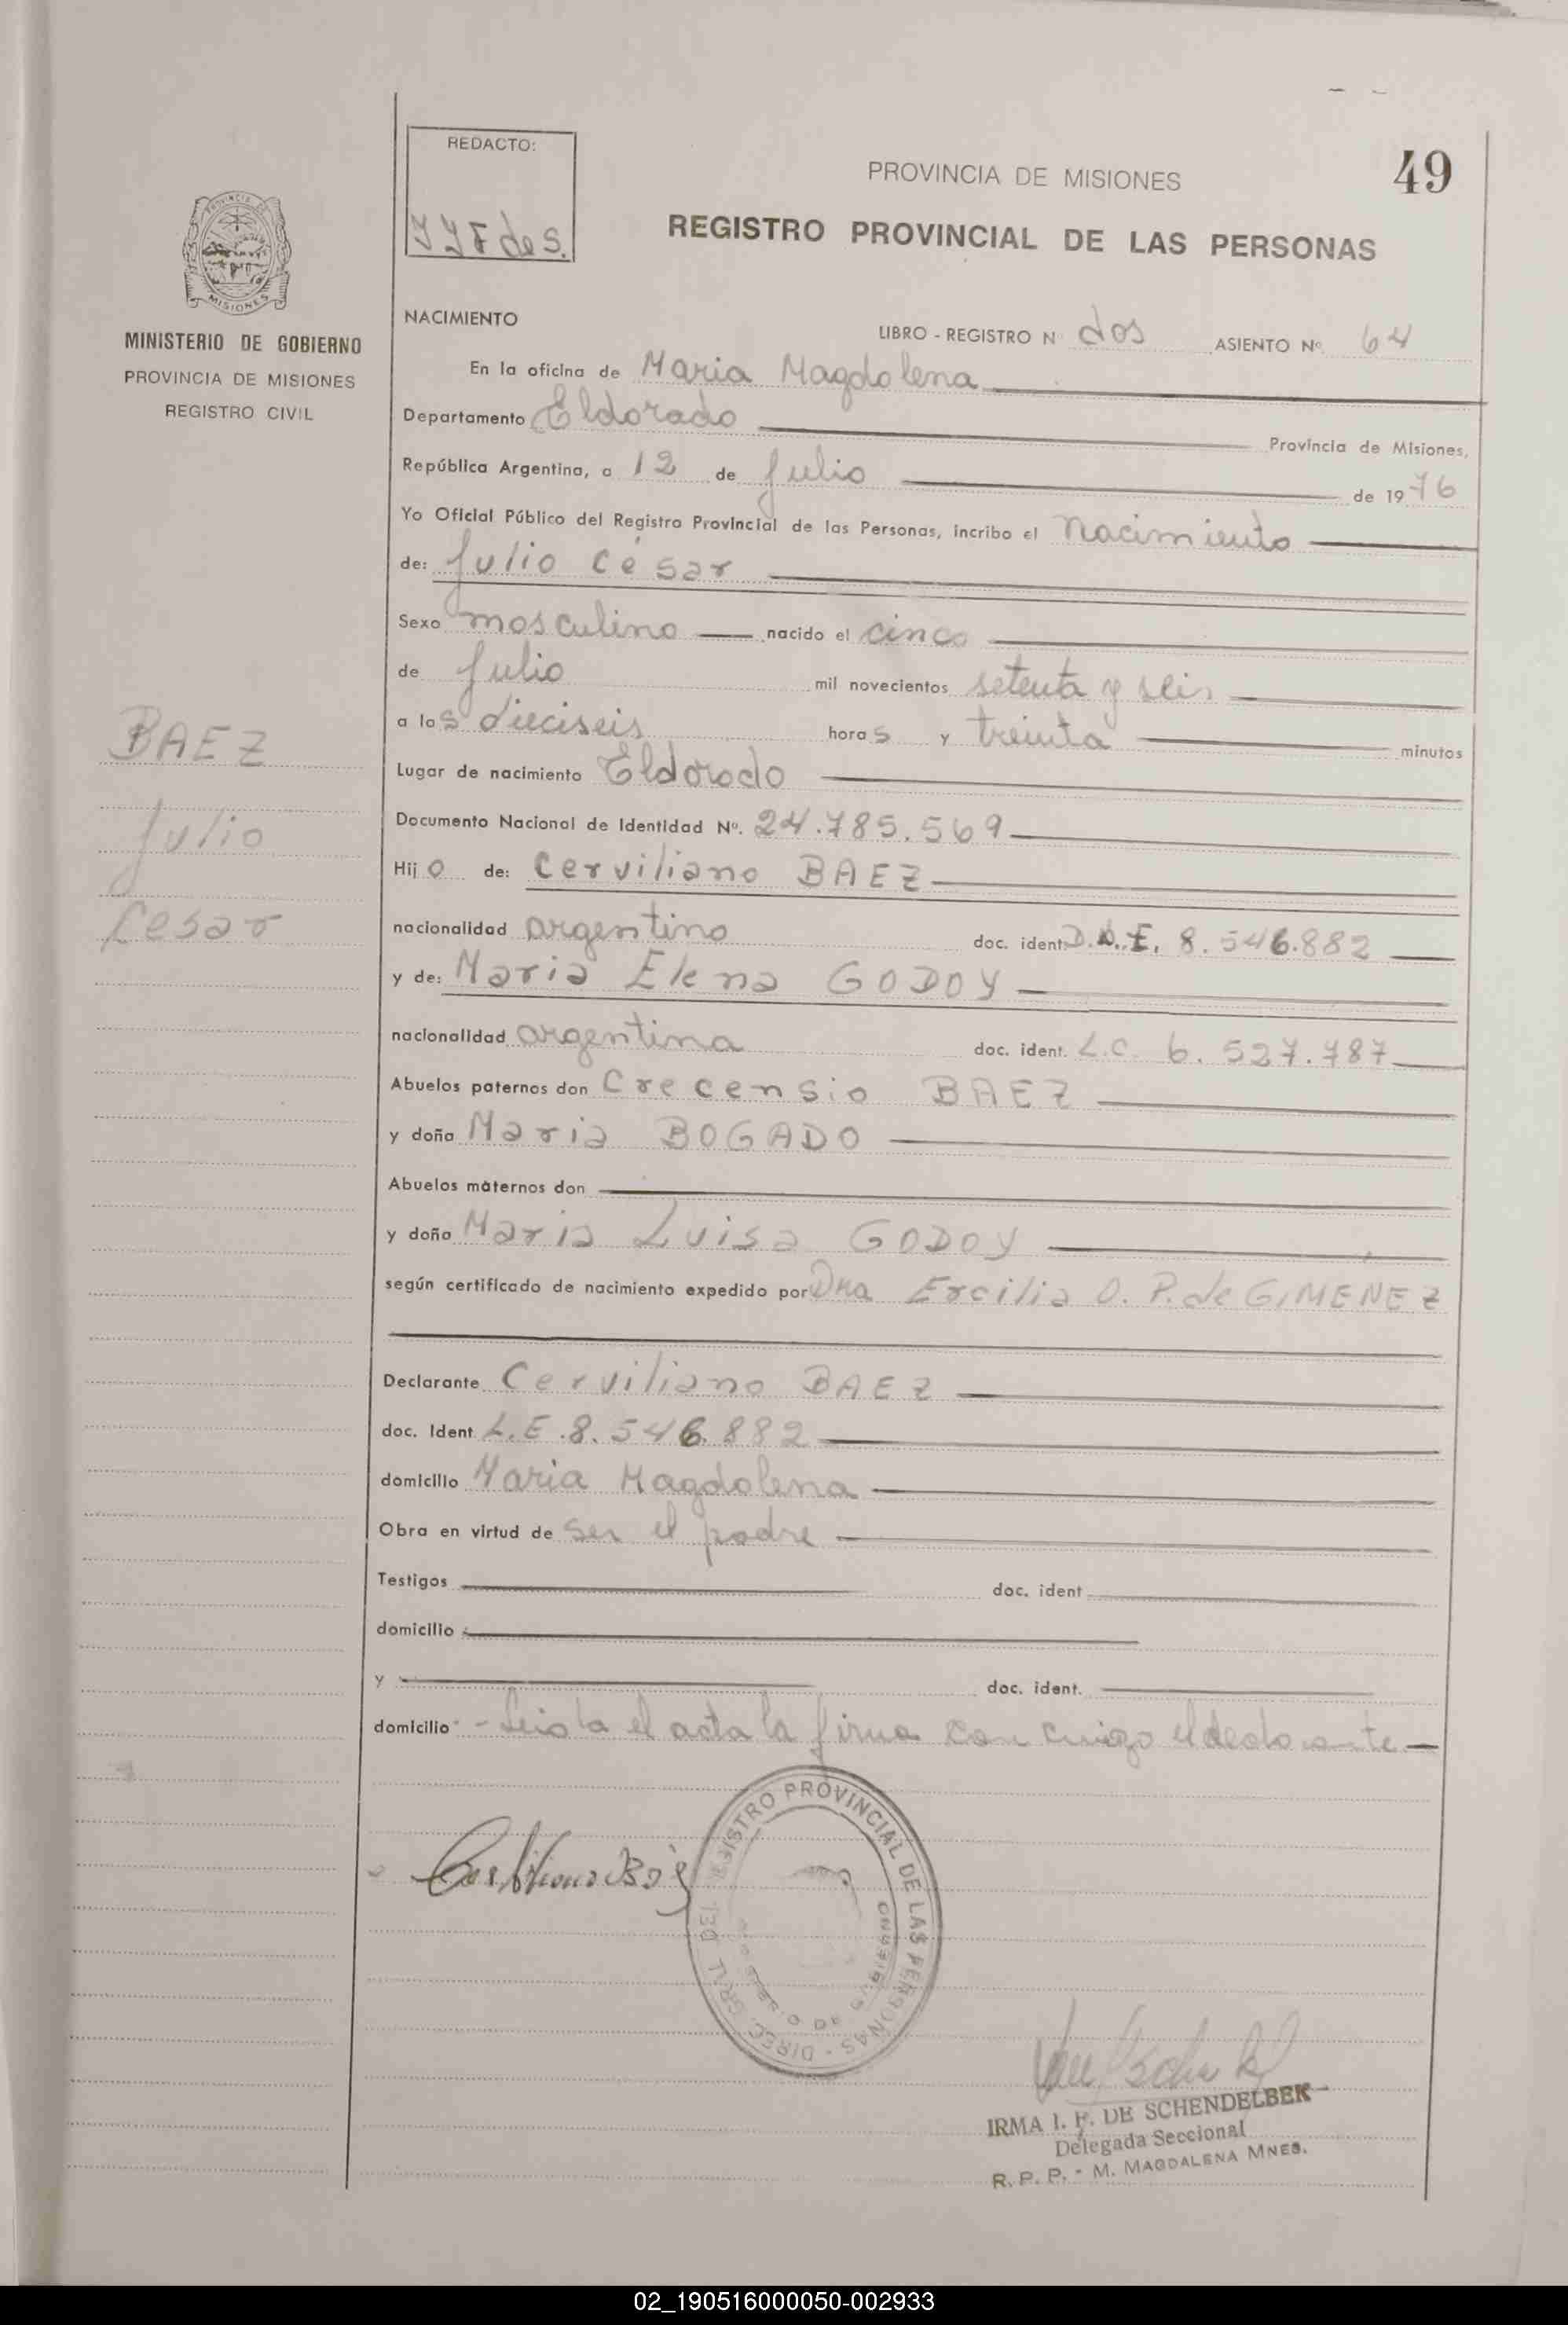 REDACTO:
PROVINCIA DE MISIONES
49
REGISTRO PROVINCIAL DE LAS PERSONAS
MISIONES
MINISTERIO DE GOBIERNO
PROVINCIA DE MISIONES
REGISTRO CIVIL
BAEZ
Julio
Cesar
NACIMIENTO
LIBRO - REGISTRO N dos ASIENTO Nº 64
En la oficina de Maria Magdalena
Departamento Eldorado Provincia de Misiones,
República Argentina, a 12 de Julio de 1976
Yo Oficial Público del Registro Provincial de las Personas, incribo el Nacimiento
de: Julio César
Sexo masculino nacido el cinco
de Julio mil novecientos setenta y seis
a las dieciseis horas y treinta minutos
Lugar de nacimiento Eldorado
Documento Nacional de Identidad Nº. 24.785.569
Hijo de: Cerviliano BAEZ
nacionalidad argentino doc. ident. 8.546.882
y de: Maria Elena GODOY
nacionalidad argentina doc. ident. L.C. 6.527.787
Abuelos paternos don Crecensio BAEZ
y doña Maria BOGADO
Abuelos maternos don
y doña Maria Luisa GODOY
según certificado de nacimiento expedido por Dra Ercilia O. P. de GIMENEZ
Declarante Cerviliano BAEZ
doc. Ident. L.E. 8.546.882
domicilio Maria Magdalena
Obra en virtud de ser el padre
Testigos doc. ident
domicilio
y doc. ident.
domicilio - Leida el acta la firma con migo el declarante
REGISTRO PROVINCIAL DE LAS PERSONAS - DIREC. GRAL. DEL
IRMA I. F. DE SCHENDELBEK
Delegada Seccional
R. P. P. - M. MAGDALENA MNES.
02_190516000050-002933